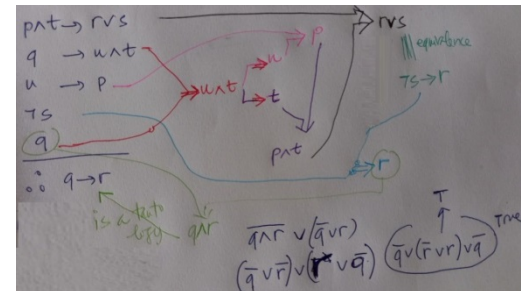 p∧t → r∨s
q → u∧t
u → p
¬s
q
∴ q→r
u∧t
u
t
p
p∧t
r∨s
equivalence
¬s→r
r
is a tautology
q∧r
q̅∧̅r̅ ∨ (q̅∨r)
(q̅∨r̅)∨(r∨q̅)
T
q̅∨(r̅∨r)∨q̅
True